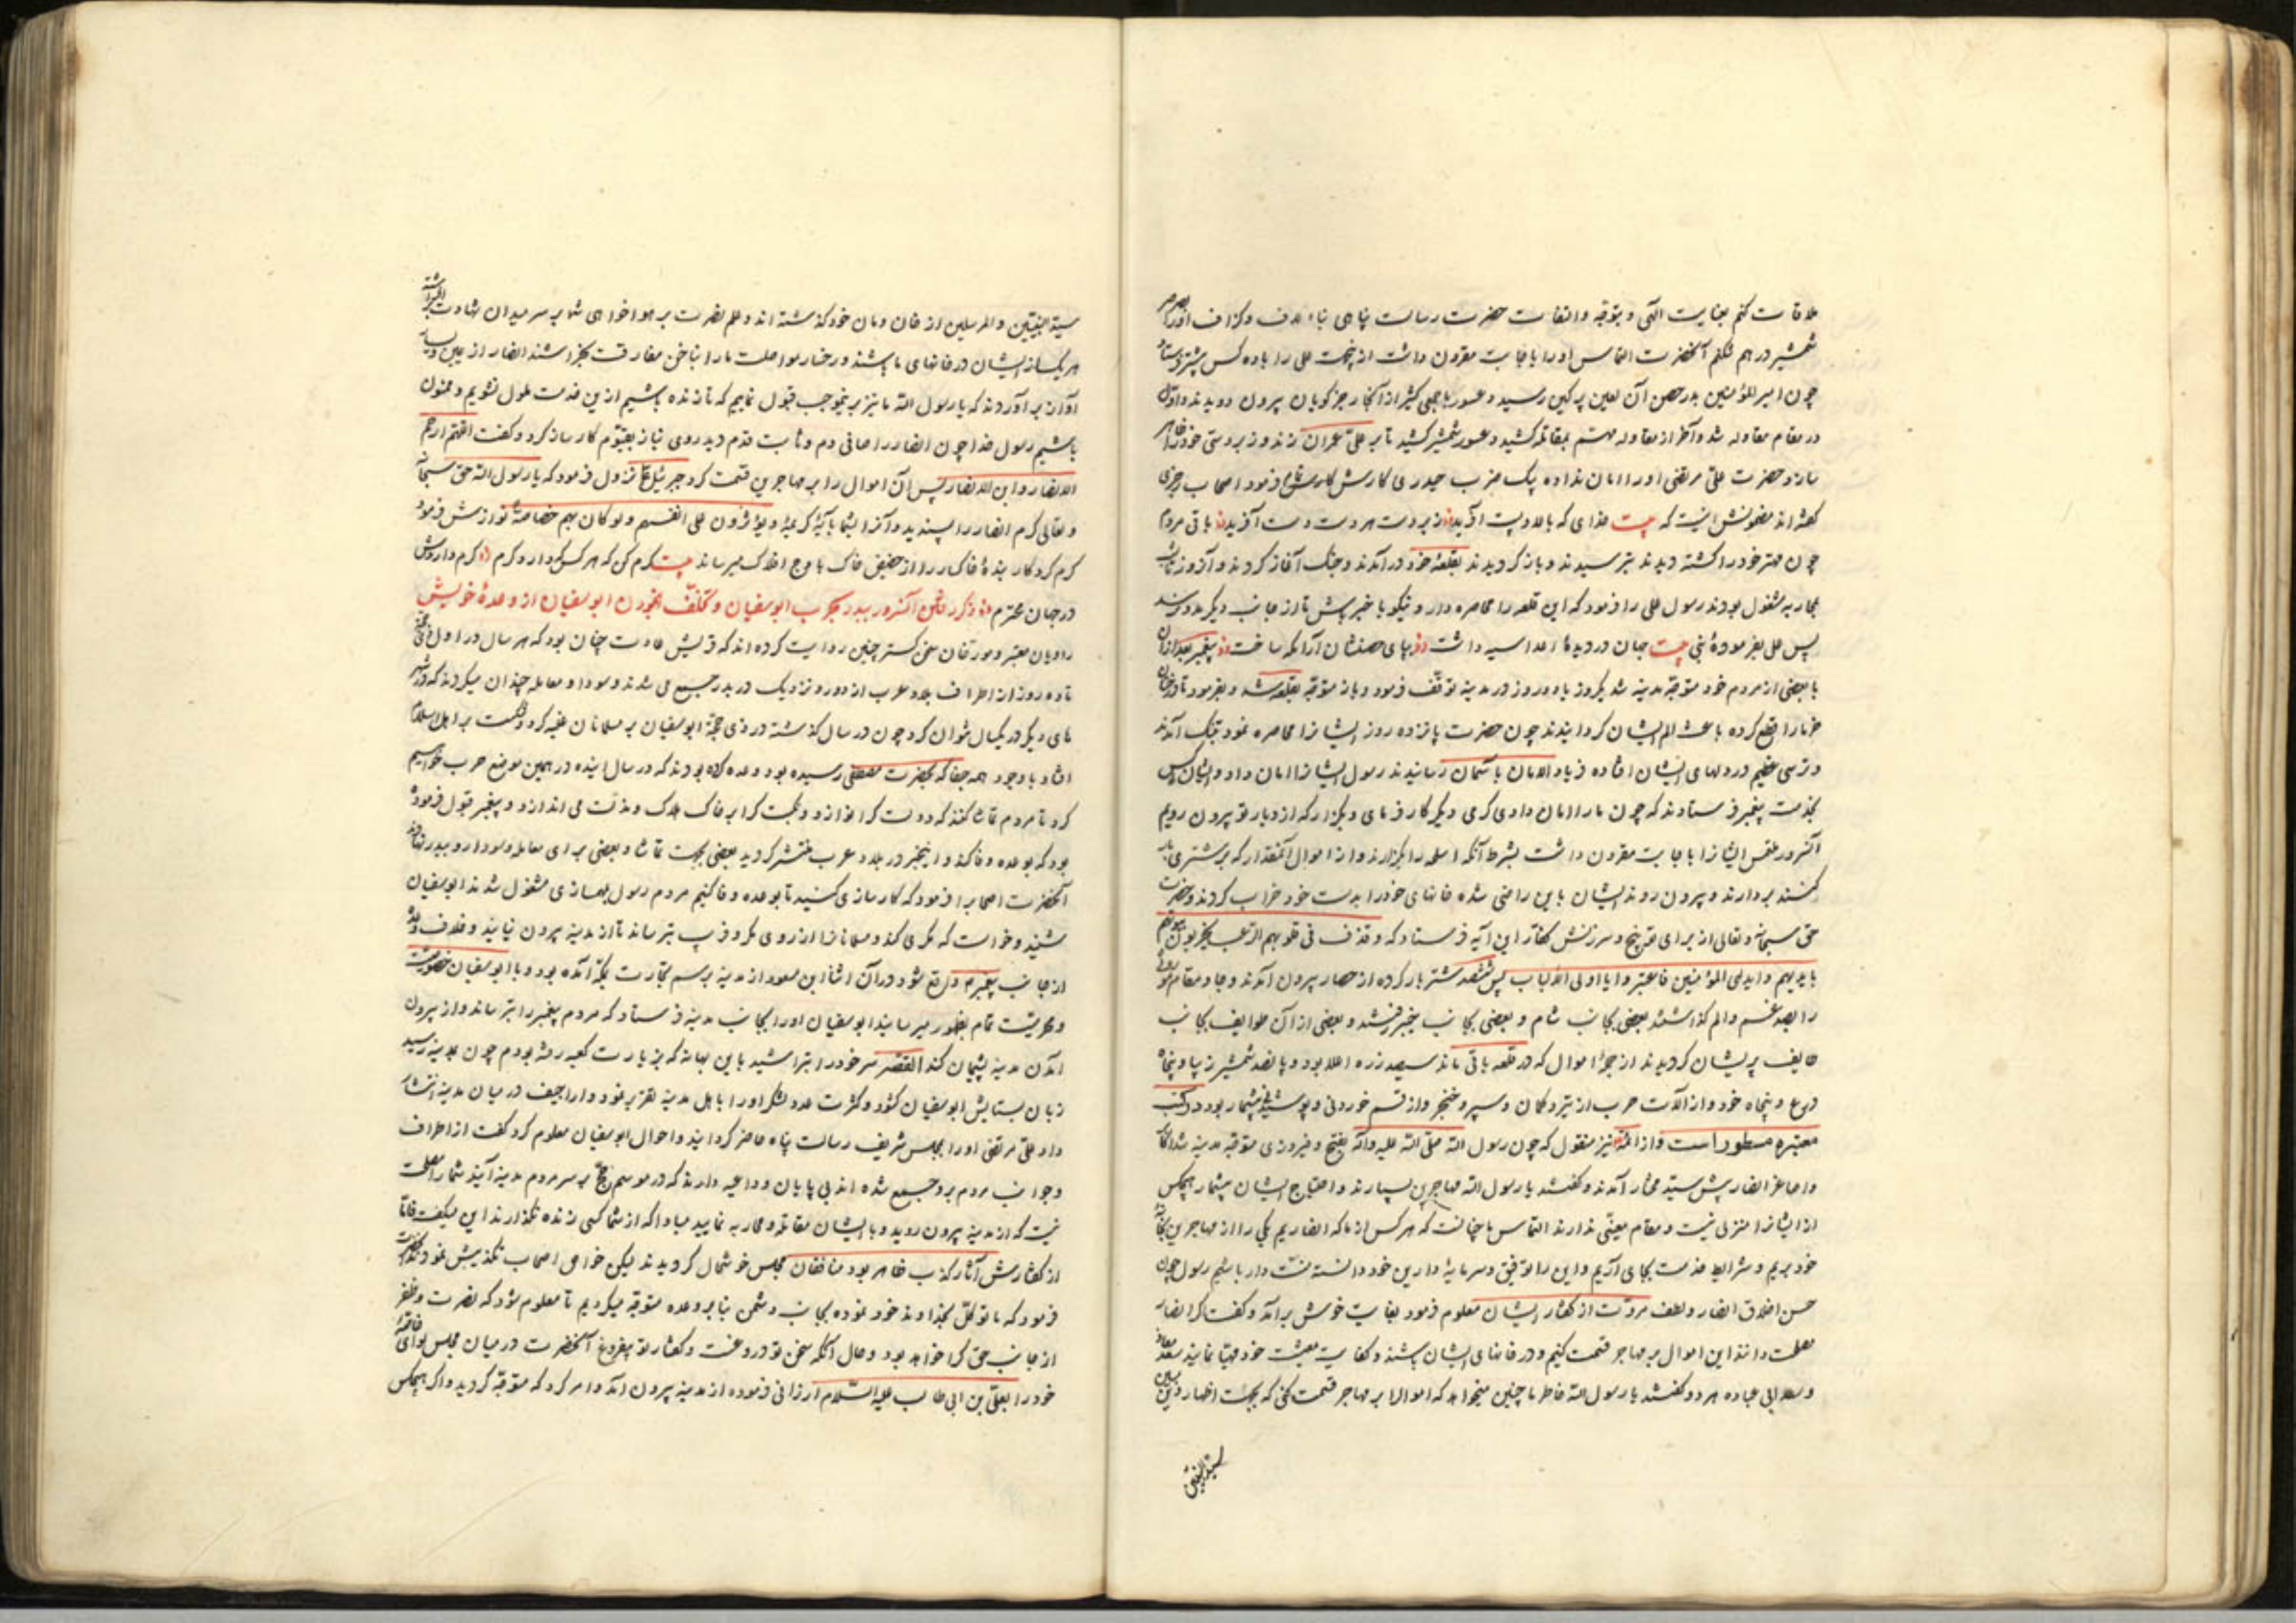 ملاقات کنم بعنایت الهی و بتوجه و التفات حضرت رسالت پناهی بی لاف و گزاف
شمشیر در هم شکنم آنحضرت التماس او را باجابت مقرون داشت علی را با ده کس
چون امیر المؤمنین بدر حصن آن لعین پر کین رسید و عسور با جمعی کثیر از آنجا رجز گویان بیرون دویدند و اول
در مقام مقاوله شد و آخر از مقاوله بمقاتله کشید و عسور شمشیر کشید تا بر علی عمران زند و زبردستی خود ظاهر
سازد حضرت علی مرتضی او را امان نداده بیک ضرب حیدری کارش فرمود اصحاب چیزی
گفته اند مضمونش اینست که بیت خدای که بالا و پست آفرید زبردست هر دست دست آفرید باقی مردم
چون مهتر خود را کشته دیدند بترسیدند و باز گردیدند بقلعه خود در آمدند و جنگ آغاز کردند و آنروز
بمحاربه مشغول بودند رسول علی را فرمود که این قلعه را محاصره دار و نیکو با خبر باش تا از جانب دیگر مدد نرسد
پس علی بفرموده نبی بیت جهان در دیده اعدا سیه داشت بپای حصنشان پیغمبر بعد از آن
با بعضی از مردم خود متوجه مدینه شد یکروز یا دو روز در مدینه توقف فرمود و باز متوجه قلعه شد و بفرمود تا درختان
خرما را قطع کرده باعث الم ایشان گردانیدند چون حضرت پانزده روز ایشانرا محاصره نمود بتنگ آمدند
و ترسی عظیم در دلهای ایشان افتاده فریاد الامان بآسمان رسانیدند رسول ایشانرا امان داد و ایشان کس
بخدمت پیغمبر فرستادند که چون ما را امان دادی کرمی دیگر کار فرمای و بگذار که از دیار تو بیرون رویم
آنسرور ملتمس ایشانرا باجابت مقرون داشت بشرط آنکه اسلحه را بگذارند و از اموال آنمقدار که بر شتری بار
کنند بردارند و بیرون روند ایشان باین راضی شده خانهای خود را بدست خود خراب کردند و حضرت
حق سبحانه و تعالی از برای توبیخ و سرزنش کفار این آیه فرستاد که و قذف فی قلوبهم الرعب یخربون بیوتهم
بایدیهم و ایدی المؤمنین فاعتبروا یا اولی الالباب پس ششصد شتر بار کرده از حصار بیرون آمدند و جا و مقام
را بصد غم و الم گذاشتند بعضی بجانب شام و بعضی بجانب خیبر رفتند و بعضی از آن طوایف بجانب
طایف پریشان گردیدند از جمله اموال که در قلعه باقی ماند سیصد زره اعلا بود و پانصد شمشیر زیبا و پنجاه
درع و پنجاه خود و از آلات حرب از تیر و کمان و سپر و خنجر و از قسم خوردنی و پوشیدنی بیشمار بود در کتب
معتبره مسطور است و از ائمه نیز منقول که چون رسول الله صلی الله علیه وآله بفتح و فیروزی متوجه مدینه شد اکابر
و اصاغر انصار پیش سید مختار آمدند و گفتند یا رسول الله مهاجرین بسیارند و احتیاج ایشان بیشمار هیچکس
از ایشانرا منزلی نیست و مقام معینی ندارند التماس ما چنانست که هر کس از ما که انصاریم یکی را از مهاجرین بخانه
خود بریم و شرایط خدمت بجای آریم و این را توفیق و سرمایه دارین خود دانسته منت دار باشیم رسول چون
حسن اخلاق انصار و لطف مروت از گفتار ایشان معلوم فرمود بغایت خوش برآمد و گفت گر انصار
مصلحت دانند این اموال بر مهاجر قسمت کنیم و در خانهای ایشان باشند و کفایت معیشت خود مهیا نمایند سعد معاذ
و سعد ابی عباده هر دو گفتند یا رسول الله خاطر ما چنین میخواهد که اموال را بر مهاجر قسمت کنی که بجهت اظهار دین
سید النبیین
سید النبیین و المرسلین از خان و مان خود گذشته اند و علم نصرت بر هوا خواهی شما بر سر میدان شهادت
هر یک از ایشان در خانهای ما باشند و رخسار مواصلت ما را بناخن مفارقت نخراشند انصار از یمین و یسار
آواز بر آوردند که یا رسول الله ما نیز برینموجب قبول نمائیم که تا زنده باشیم ازین خدمت ملول نشویم و ممنون
باشیم رسول خدا چون انصار را صافی دم و ثابت قدم دید روی نیاز بقیوم کارساز کرد و گفت اللهم ارحم
الانصار و ابن الانصار پس آن اموال را بر مهاجرین قسمت کرد جبرئیل نزول فرمود که یا رسول الله حق سبحانه
و تعالی کرم انصار را پسندید و آنرا بآیه کریمه و یؤثرون علی انفسهم ولو کان بهم خصاصة نوازش فرمود
کرم کردگار بنده خاکسار را از حضیض خاک باوج افلاک میرساند بیت کرم کن که هر کس که دارد کرم کرم دارد
در جهان محترم ذکر رفتن آنسرور ببدر بحرب ابوسفیان و تخلف نمودن ابوسفیان از وعده خویش
راویان معتبر و مورخان سخن گستر چنین روایت کرده اند که قریش عادت چنان بود که هر سال در اول
تا ده روز از اطراف بلاد عرب از دور و نزدیک در بدر جمیع می شدند و سودا و معامله چندان میکردند که در
های دیگر در یکسال نتوان کرد چون در سال گذشته در ذی حجه ابوسفیان بر مسلمانان غلبه کرد و شکست بر اهل اسلام
افتاد با وجود همه جفا که بحضرت مصطفی رسیده بود وعده کرده بودند که در سال آینده در همین موضع حرب خواهیم
کرد تا مردم تماشا کنند که دولت کرا نوازد و نکبت کرا بر خاک هلاک و مذلت می اندازد و پیغمبر قبول فرموده
بود که بوعده وفا کند و اینخبر در بلاد عرب منتشر گردید بعضی بجهت تماشا و بعضی برای معامله و سودا رو ببدر نهادند
آنحضرت اصحابرا فرمود که کارسازی کنید تا بوعده وفا کنیم مردم رسول بهمسازی مشغول شدند ابوسفیان
شنید و خواست که مکری کند و مسلمانانرا از روی مکر و فریب بترساند تا از مدینه بیرون نیایند و خلاف وعده
از جانب پیغمبر واقع شود در آن اثنا ابن مسعود از مدینه برسم تجارت بمکه آمده بود و با ابوسفیان خصوصیت
و محرمیت تمام بظهور میرسانید ابوسفیان او را بجانب مدینه فرستاد که مردم پیغمبر را بترساند و از بیرون
آمدن مدینه پشیمان کند القصه سر خود را بتراشید باین بهانه که بزیارت کعبه رفته بودم چون بمدینه رسید
زبان بستایش ابوسفیان گشود و کثرت عدد لشکر او را با اهل مدینه تقریر نمود و اراجیف در میان مدینه انتشار
داد علی مرتضی او را بمجلس شریف رسالت پناه حاضر گردانید و احوال ابوسفیان معلوم کرد گفت از اطراف
و جوانب مردم برو جمیع شده اند بی پایان و داعیه دارند که در موسم حج بر سر مردم مدینه آیند شما را مصلحت
نیست که از مدینه بیرون روید و با ایشان مقاتله و محاربه نمایید مبادا که از شما کسی زنده نگذارند این میگفت
از گفتارش آثار کذب ظاهر بود منافقان مجلس خوشحال گردیدند لیکن خواص اصحاب تکذیبش نمودند
فرمود که ما توکل بخداوند خود نموده بجانب دشمن بنا بر وعده متوجه میگردیم تا معلوم شود که نصرت و ظفر
از جانب حق کرا خواهد بود و حال آنکه سخن تو دروغست و گفتار تو بیفروغ آنحضرت در میان مجلس لوای
خود را بعلی بن ابی طالب علیه السلام ارزانی فرموده از مدینه بیرون آمد و امر کرد که متوجه گردید و اگر هیچکس